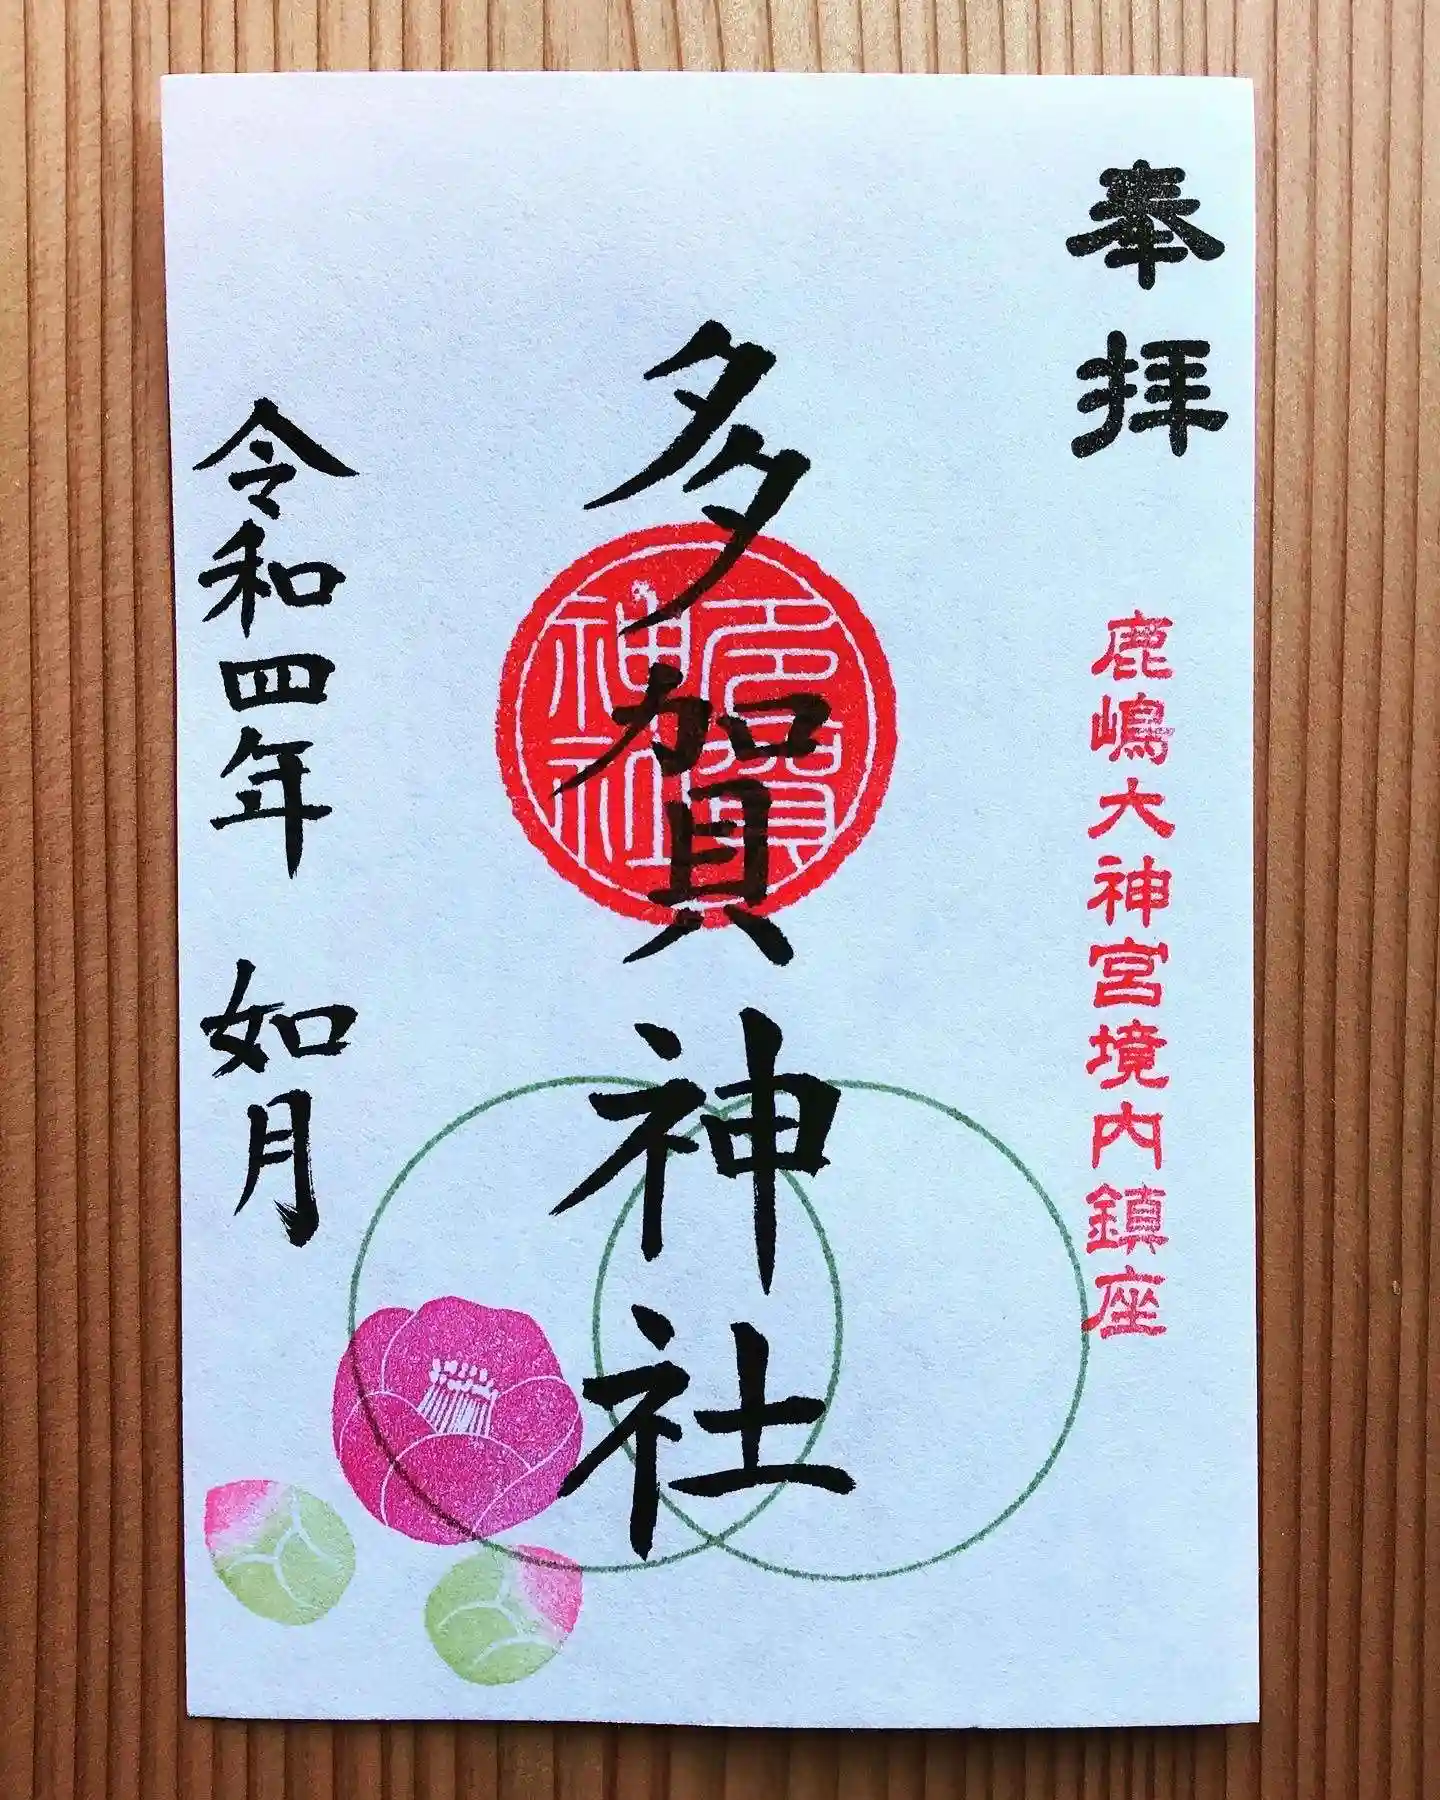 奉拝
鹿嶋大神宮境内鎮座
多賀神社
多賀神社
令和四年 如月